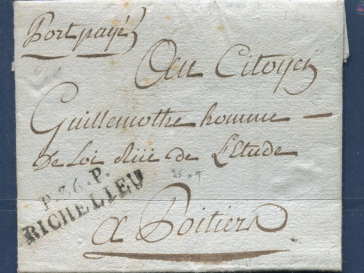 Port payé
Au Citoyen
Guillemothe homme
de Loi Rüe de L'Etude
P.36.P.
RICHELIEU
a Poitiers